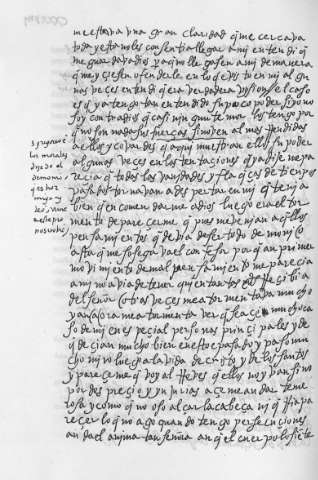 me estava una gran claridad que me cercava
toda y esta no les consentia llegar a mi entendi q̃
me guardava dios pa q̃ no llegasen a mi de manera
q̃ me yçiesen ofenderle en lo q̃ e visto en mi algu
nas veçes entendi q̃ era verdadera vysion el caso
es q̃ ya tengo tan entendido su poco poder si yo no
soy contra dios q̃ casi ningun temor los tengo por
q̃ no son nada sus fuerças si no ven almas rendidas
a ellos y covardes q̃ aqui muestran ellos su poder
algunas veçes en las tentaciones q̃ ya dije me pa
recia q̃ todas las vanidades y flaq̃ças de tienpos
pasados tornavan a despertar en mi q̃ tenia
bien q̃ encomendarme a dios luego era el tor
mento de parecerme q̃ pues me venian aq̃llos
pensamientos q̃ devia de ser todo demonio
asta q̃ me sosegava el confesor porq̃ aun primer
movimiento de mal pensamiento me parecia
a mi no avia de tener quien tantas mds rreçibia
del señor otras veçes me atormentava mucho
y aun aora me atormenta ver q̃ se açe mucho ca
so de mi en especial personas prinçipales y de
q̃ deçian mucho bien en esto e pasado y paso mu
cho miro luego a la vida de cristo y de los santos
y pareçeme q̃ voy al rreves q̃ ellos no yvan sino
por despreçio y ynjurias açeme andar teme
rosa y como q̃ no oso alçar la cabeça ni q̃ rria pa
reçer lo q̃ no ago quando tengo persecuciones
anda el anima tan señora aun q̃ el cuerpo lo siente